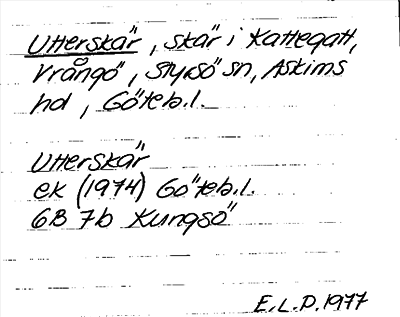 Utterskär, skär i Kattegatt,
Vrångö, Styrsö sn, Askims
hd, Göteb.l.
Utterskär
ek (1974) Göteb.l.
6B 7b Kungsö
E.L.D. 1977